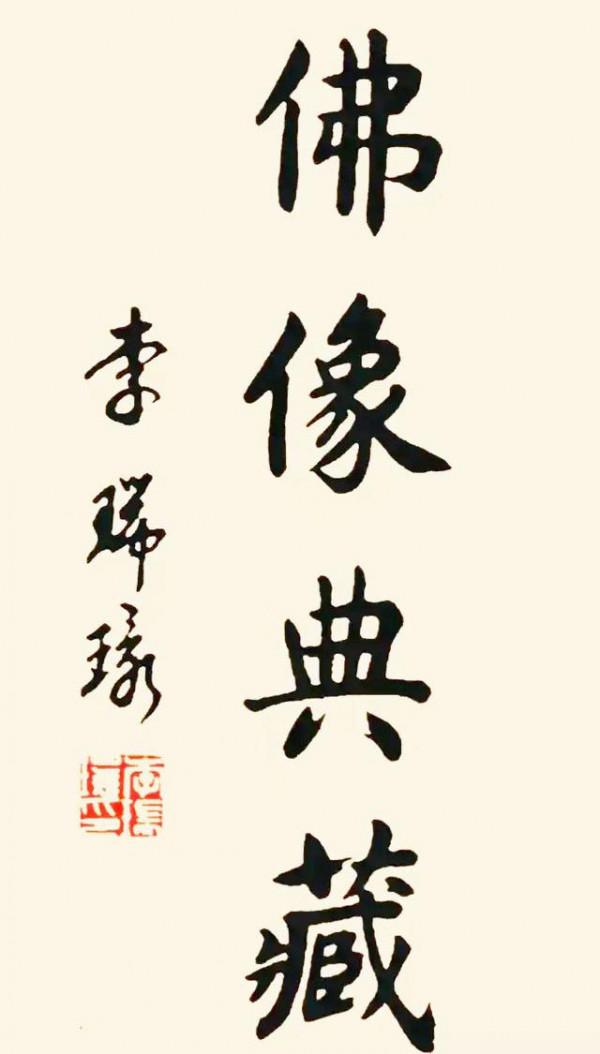 佛像典藏
李瑞環